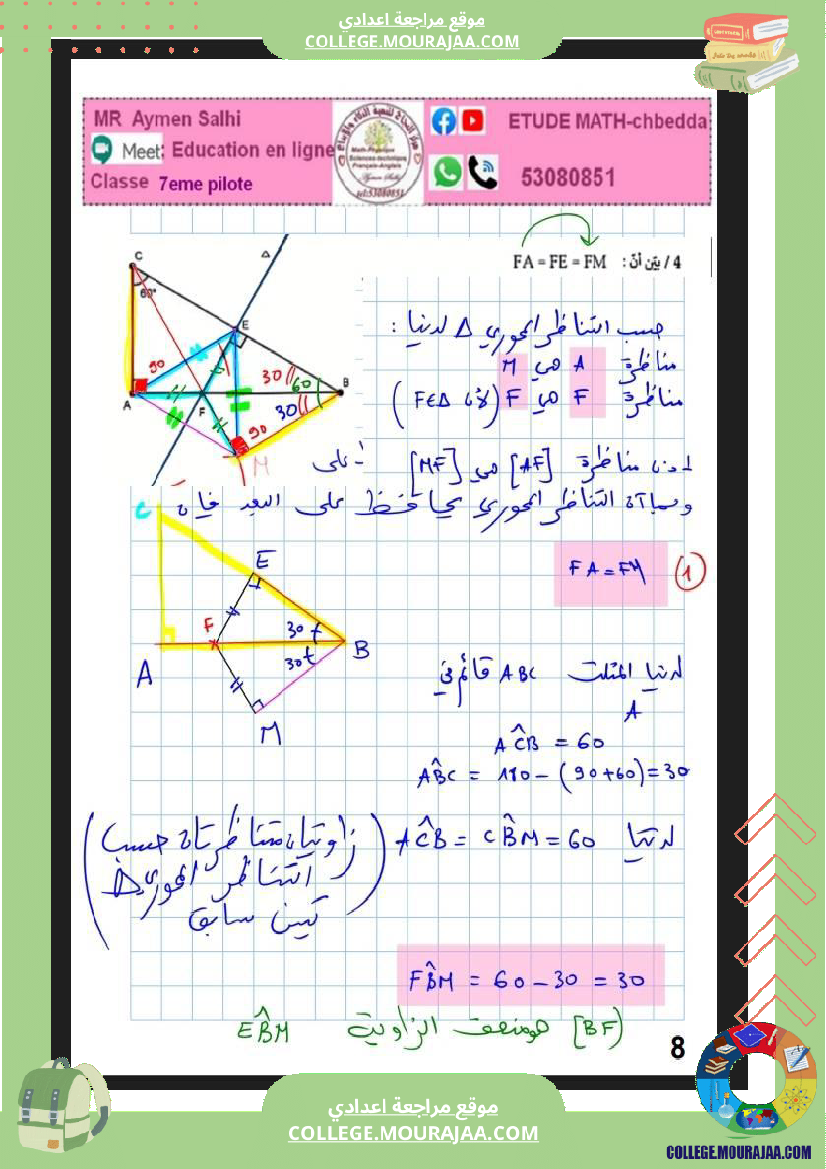 موقع مراجعة اعدادي
COLLEGE.MOURAJAA.COM
MR Aymen Salhi
Meet: Education en ligne
Classe 7eme pilote
ETUDE MATH-chbedda
53080851
4/ بيّن أنّ: FA = FE = FM
حسب التناظر المحوري Δ لدينا :
مناظرة A هي M
مناظرة F هي F (لأن F∈Δ)
اذن مناظرة [AF] هي [MF]
وبما أن التناظر المحوري يحافظ على البعد فإن
FA = FM (1)
C
Δ
60°
E
90
30
60
30
A
F
B
90
M
C
E
F
30
30
A
B
M
لدينا المثلث ABC قائم في
A
AĈB = 60
AB̂C = 180 - (90+60) = 30
لدينا AĈB = CB̂M = 60 (زاويتان متناظرتان حسب
التناظر المحوري Δ
سابق
FB̂M = 60 - 30 = 30
[BF) هو منصف الزاوية EB̂M
8
موقع مراجعة اعدادي
COLLEGE.MOURAJAA.COM
COLLEGE.MOURAJAA.COM